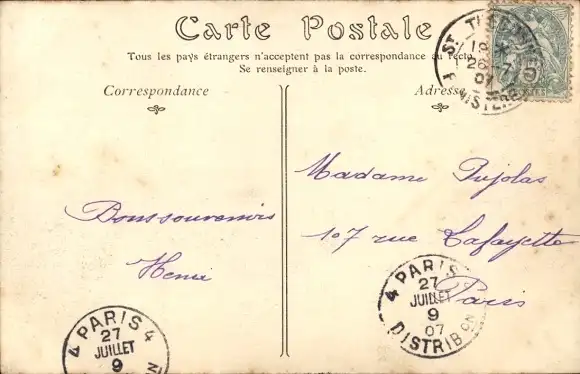 Carte Postale
Tous les pays étrangers n'acceptent pas la correspondance au recto.
Se renseigner à la poste.
Correspondance
Adresse
Bons souvenirs
Henri
Madame Pujolas
107 rue Lafayette
Paris
18 *
26 - 7
07
FINISTERE
4 PARIS 4
27
JUILLET
9
4 PARIS
27
JUILLET
9
07
DISTRIBON